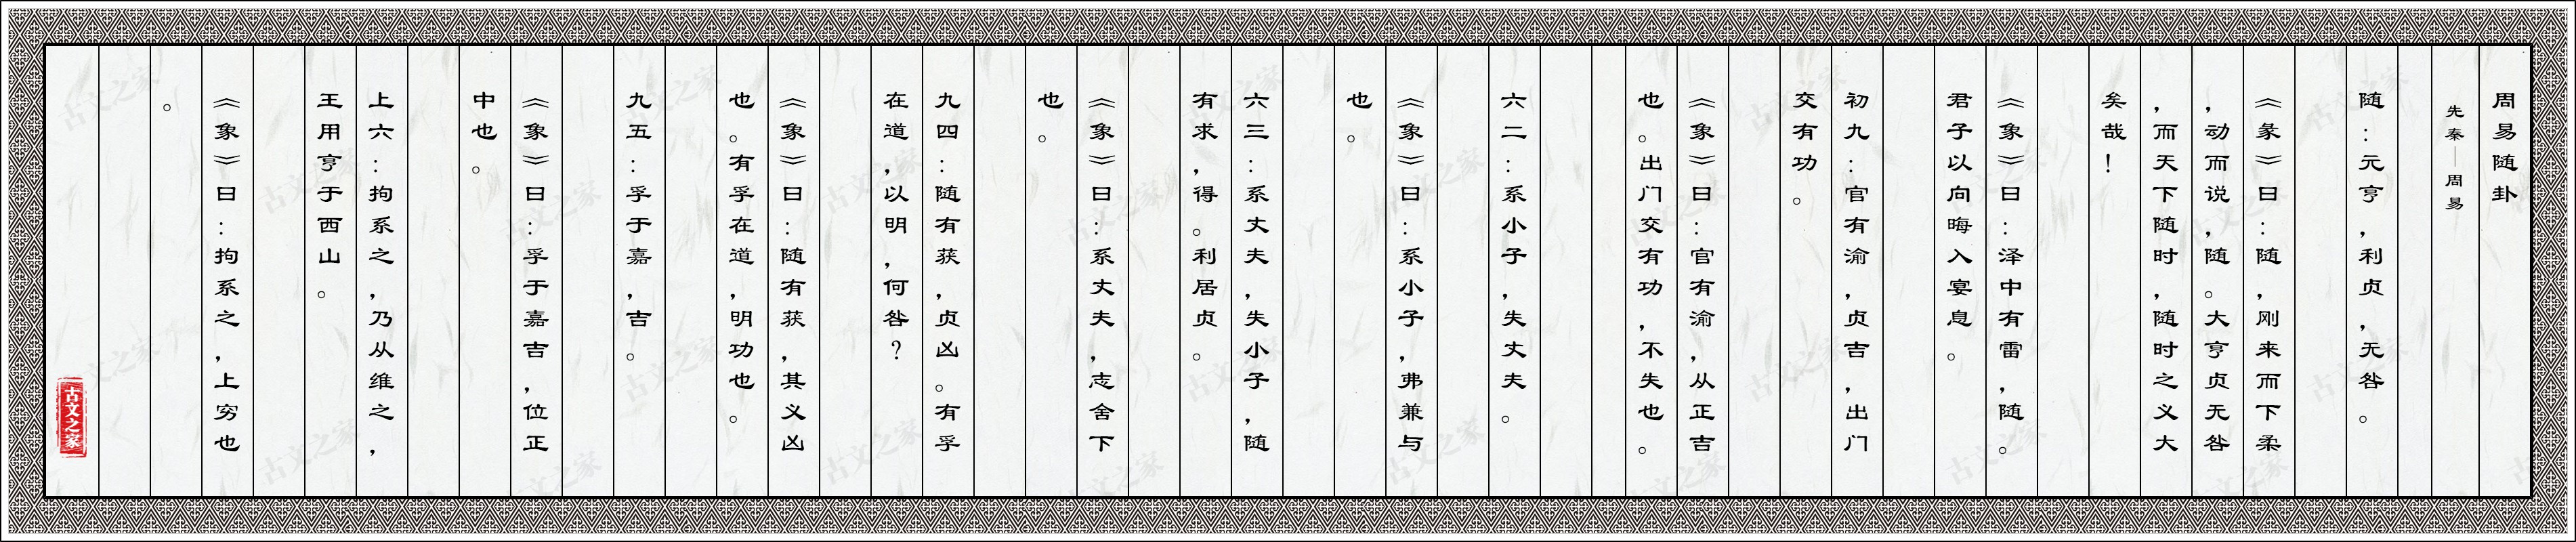 周易随卦
先秦——周易
随：元亨，利贞，无咎。
《彖》曰：随，刚来而下柔
，动而说，随。大亨贞无咎
，而天下随时，随时之义大
矣哉！
《象》曰：泽中有雷，随。
君子以向晦入宴息。
初九：官有渝，贞吉，出门
交有功。
《象》曰：官有渝，从正吉
也。出门交有功，不失也。
六二：系小子，失丈夫。
《象》曰：系小子，弗兼与
也。
六三：系丈夫，失小子，随
有求，得。利居贞。
《象》曰：系丈夫，志舍下
也。
九四：随有获，贞凶。有孚
在道，以明，何咎？
《象》曰：随有获，其义凶
也。有孚在道，明功也。
九五：孚于嘉，吉。
《象》曰：孚于嘉吉，位正
中也。
上六：拘系之，乃从维之，
王用亨于西山。
《象》曰：拘系之，上穷也
。
古文之家